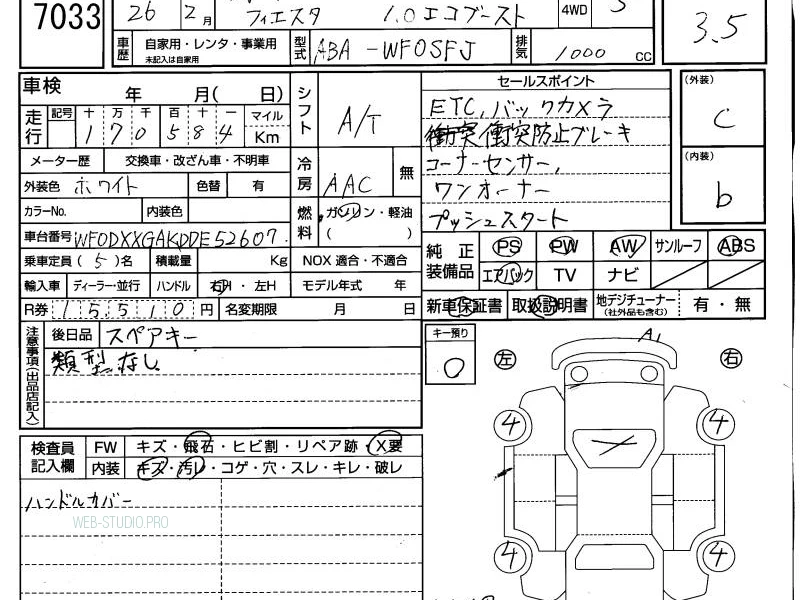 7033
26 年 2月
フィエスタ 1.0エコブースト
4WD 5
3.5
車歴 自家用・レンタ・事業用
未記入は自家用
型式 ABA-WF0SFJ
排気 1000 cc
車検 年 月( 日)
走行 記号 十 万 千 百 十 一 マイル
170584 Km
メーター歴 交換車・改ざん車・不明車
外装色 ホワイト 色替 有
カラーNo. 内装色
車台番号 WF0DXXGAKDDE52607
乗車定員(5)名 積載量 Kg
輸入車 ディーラー・並行 ハンドル 右H・左H
R券 15510円 名変期限 月 日
シフト A/T
冷房 AAC 無
燃料 ガソリン・軽油
( )
NOX 適合・不適合
モデル年式 年
セールスポイント
ETC,バックカメラ
衝突衝突防止ブレーキ
コーナーセンサー,
ワンオーナー
プッシュスタート
(外装)
C
(内装)
b
純正装備品 PS PW AW サンルーフ ABS
エアバック TV ナビ
新車保証書 取扱説明書 地デジチューナー(社外品も含む) 有・無
注意事項(出品店記入)
後日品 スペアキー
類型なし
キー預り
0
A1
左 右
4 4
4 4
検査員記入欄 FW キズ・飛石・ヒビ割・リペア跡・X要
内装 キズ・汚レ・コゲ・穴・スレ・キレ・破レ
ハンドルカバー
WEB-STUDIO.PRO